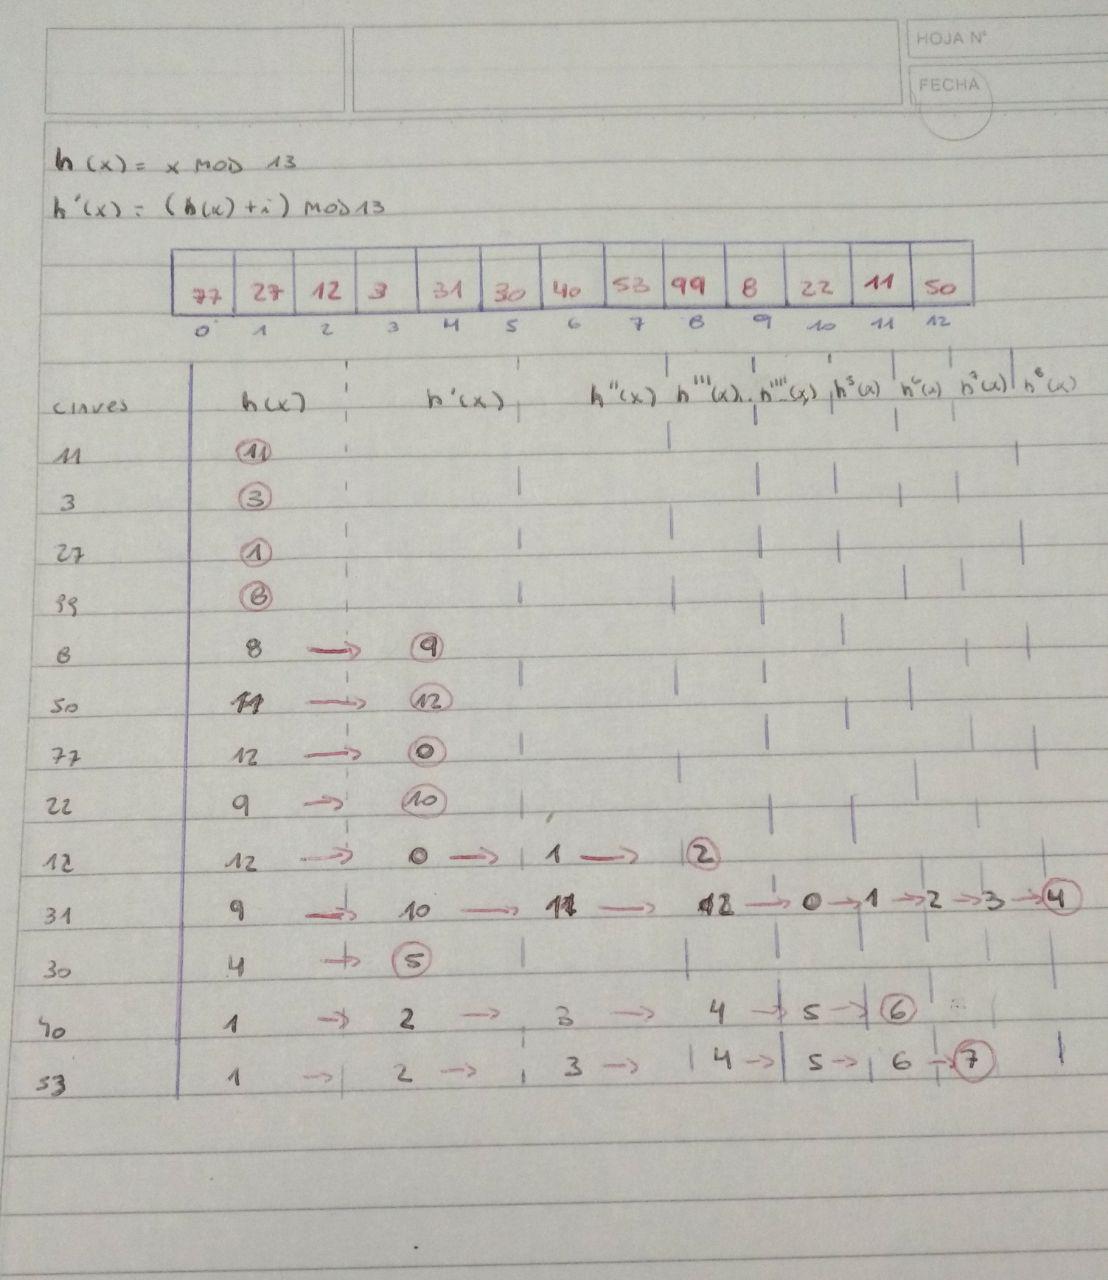 HOJA N°
FECHA
h(x) = x MOD 13
h'(x) = (h(x) + i) MOD 13
77 27 12 3 31 30 40 53 99 8 22 11 50
0 1 2 3 4 5 6 7 8 9 10 11 12
CLAVES h(x) h'(x) h''(x) h'''(x) h''''(x) h⁵(x) h⁶(x) h⁷(x) h⁸(x)
11 11
3 3
27 1
99 8
8 8 → 9
50 11 → 12
77 12 → 0
22 9 → 10
12 12 → 0 → 1 → 2
31 9 → 10 → 11 → 12 → 0 → 1 → 2 → 3 → 4
30 4 → 5
40 1 → 2 → 3 → 4 → 5 → 6
53 1 → 2 → 3 → 4 → 5 → 6 → 7